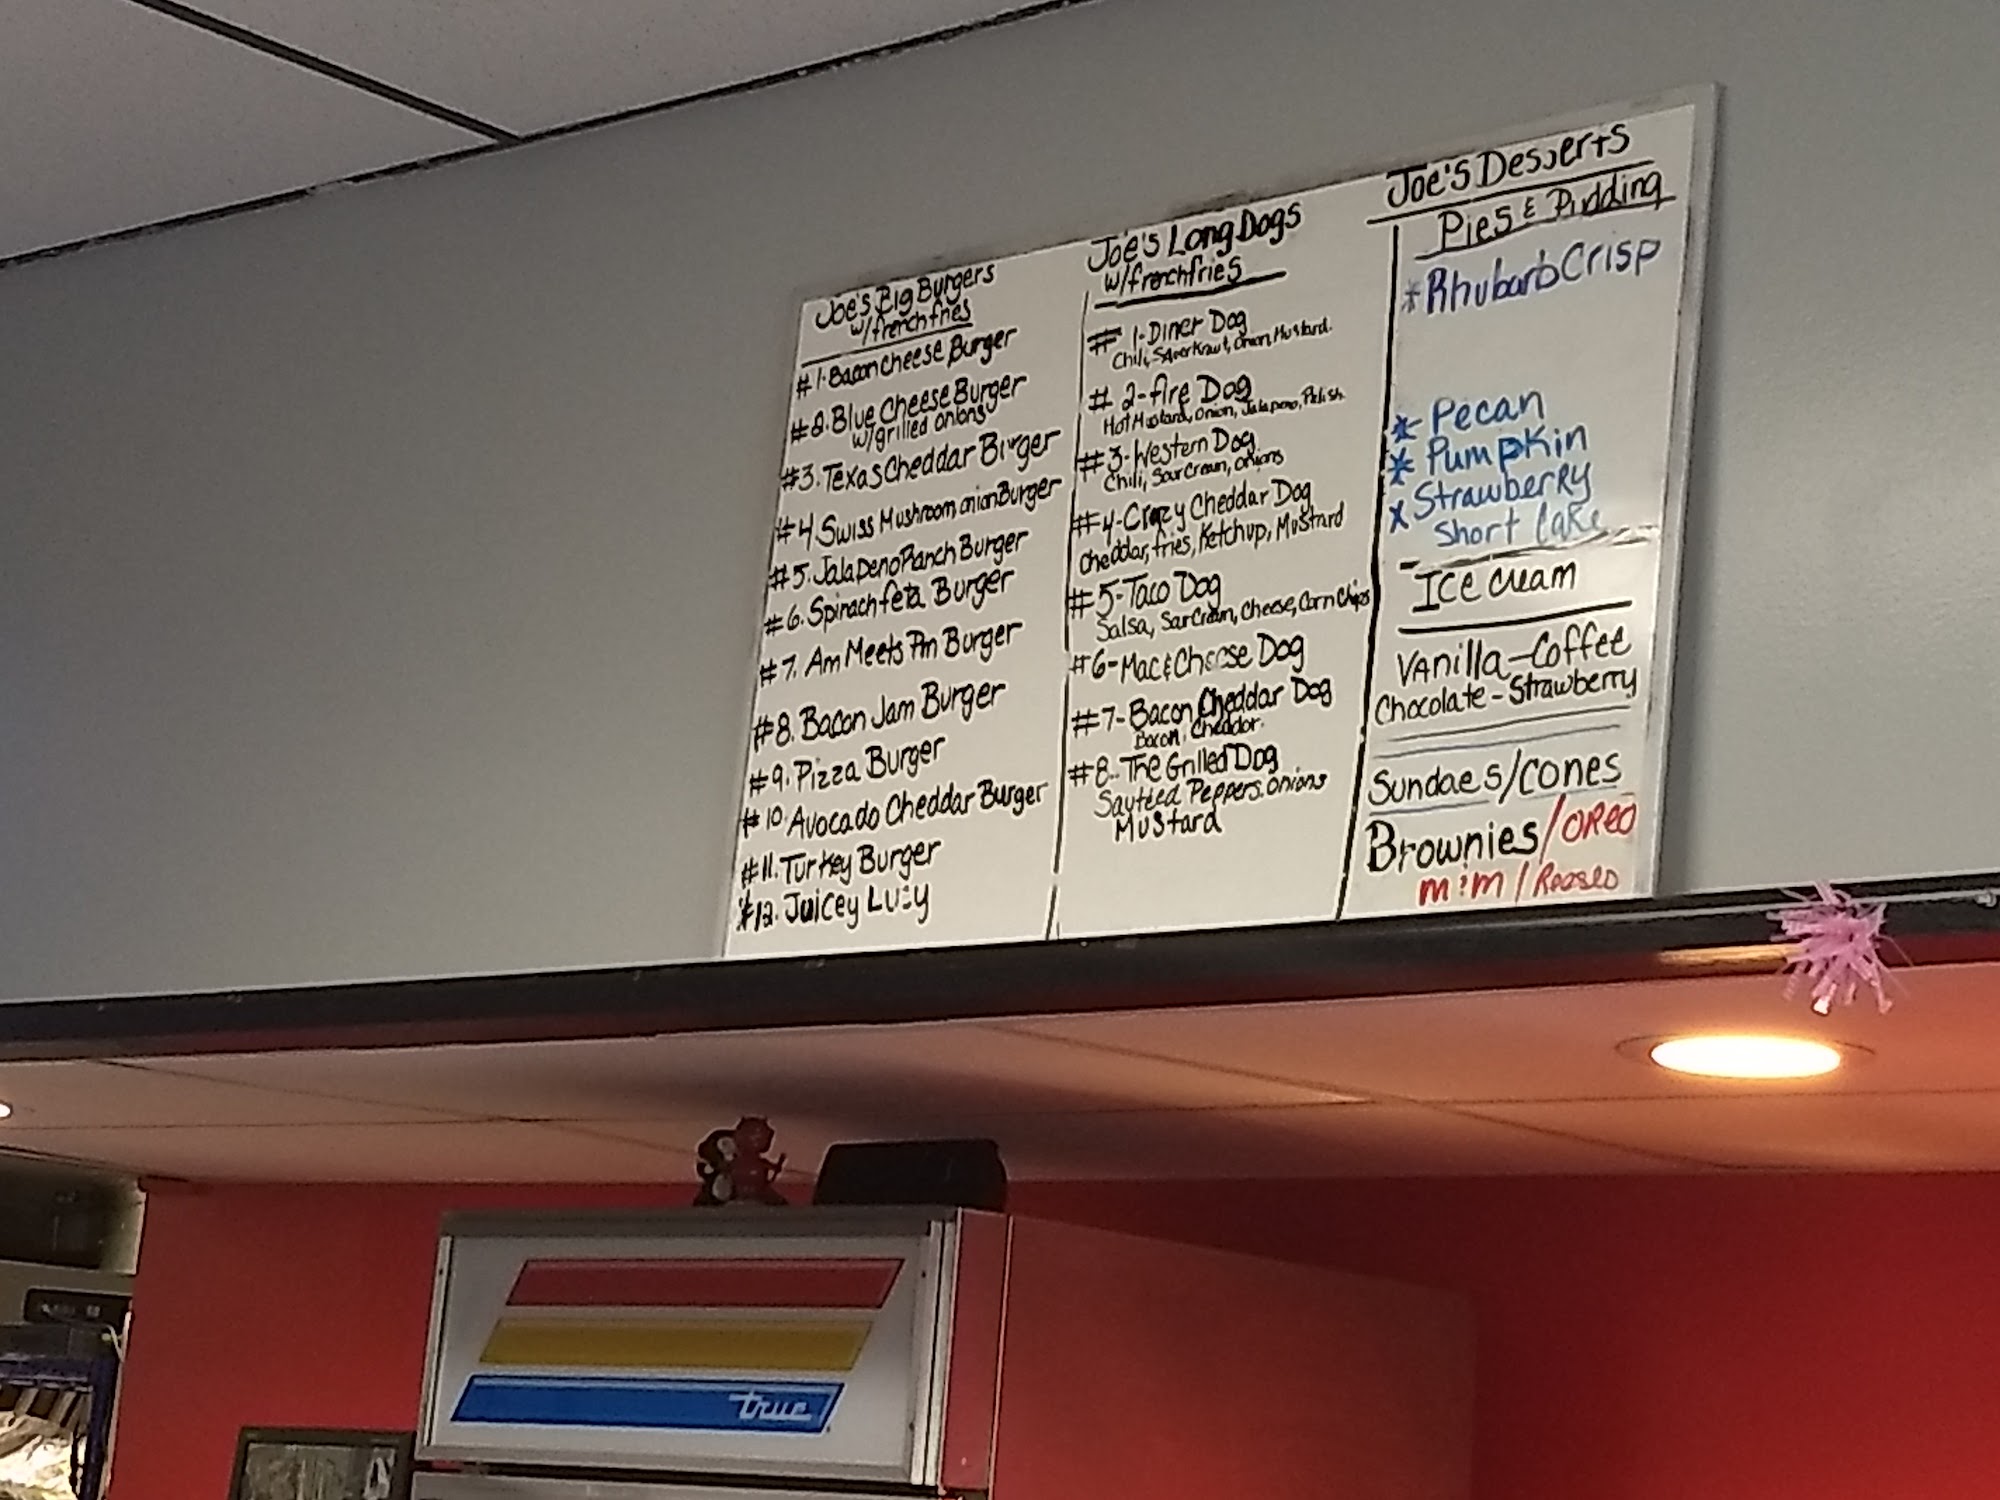 Joe's Big Burgers
w/french fries
#1. Bacon Cheese Burger
#2. Blue Cheese Burger
w/grilled onions
#3. Texas Cheddar Burger
#4. Swiss Mushroom onion Burger
#5. Jalapeno Ranch Burger
#6. Spinach feta Burger
#7. Am Meets Pm Burger
#8. Bacon Jam Burger
#9. Pizza Burger
#10. Avocado Cheddar Burger
#11. Turkey Burger
#12. Juicey Lucy
Joe's Long Dogs
w/french fries
#1-Diner Dog
Chili, Saverkraut, Onion, Mustard.
#2-fire Dog
Hot Mustard, Onion, Jalapeno, Relish
#3-Western Dog
Chili, Sour Cream, Onions
#4-Crazy Cheddar Dog
Cheddar, fries, Ketchup, Mustard
#5-Taco Dog
Salsa, Sour Cream, Cheese, Corn Chips
#6-Mac & Cheese Dog
#7-Bacon Cheddar Dog
Bacon, Cheddar.
#8-The Grilled Dog
Sauteed Peppers. Onions
Mustard
Joe's Desserts
Pies & Pudding
*Rhubarb Crisp
* Pecan
* Pumpkin
* Strawberry
Short Cake
Ice cream
Vanilla-Coffee
Chocolate-Strawberry
Sundaes/Cones
Brownies/OREO
M&M/Reeses
true